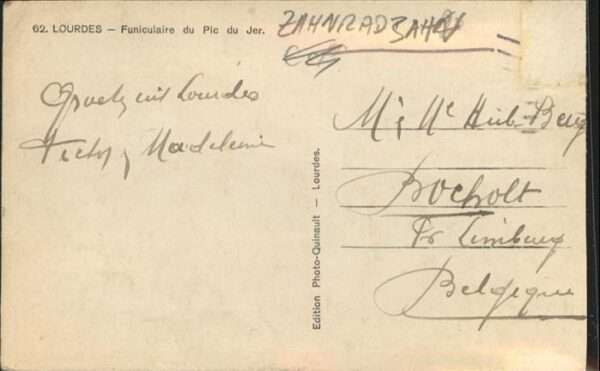 62. LOURDES — Funiculaire du Pic du Jer.
ZAHNRADBAHN
Groeten uit Lourdes
Victor, Madeleine
Edition Photo-Quinault — Lourdes.
Mr & Me
Bocholt
Pr Limbourg
Belgique